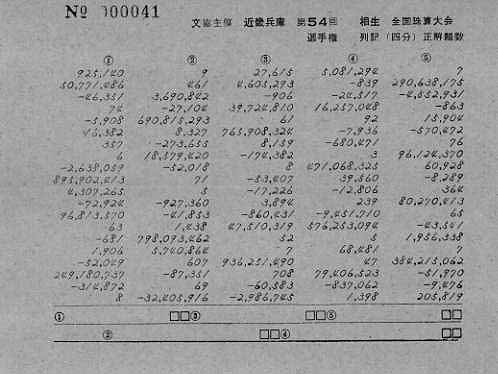 № 000041
文協主催 近畿兵庫 第54回 相生 全国珠算大会
選手権 列記（四分）正解題数
① ② ③ ④ ⑤
925,140 9 27,615 5,081,294 7
50,771,486 461 4,605,293 -839 290,638,175
-46,351 3,690,842 -906 -24,517 -4,552,931
74 -27,104 39,724,810 16,257,048 -863
-5,908 690,815,293 61 92 15,904
16,382 8,327 765,908,324 -7,936 -570,472
357 -273,655 8,159 -680,471 76
6 18,579,420 -174,382 3 96,124,370
-2,638,059 -52,018 8 471,068,325 60,928
895,902,413 71 -53,407 39,560 -8,289
4,307,265 5 -17,226 -12,806 364
-72,924 -927,360 3,894 239 80,270,413
96,813,570 -41,853 -860,431 -9,451,710 65
63 1,438 47,510,319 576,253,094 -43,541
-681 798,093,462 52 5 1,956,338
1,906 5,740,864 -7 68,481 7
-52,049 607 936,251,490 47 384,215,062
249,180,737 -87,351 708 79,406,523 -51,970
-314,872 69 -60,583 -837,062 -9,476
8 -32,405,916 -2,986,745 1,398 205,819
① □□③ □□⑤ □□
② □□④ □□